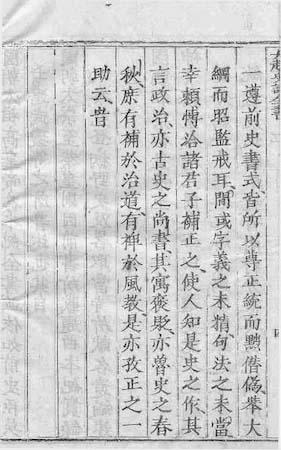 一遵前史書式皆所以尊正統而黜僭偽舉大
綱而昭監戒耳間或字義之未精句法之未當
幸頼博洽諸君子補正之使人知是史之作其
言政治亦古史之尚書其寓褒貶亦魯史之春
秋庶有補於治道有裨於風教是亦攷正之一
助云旹